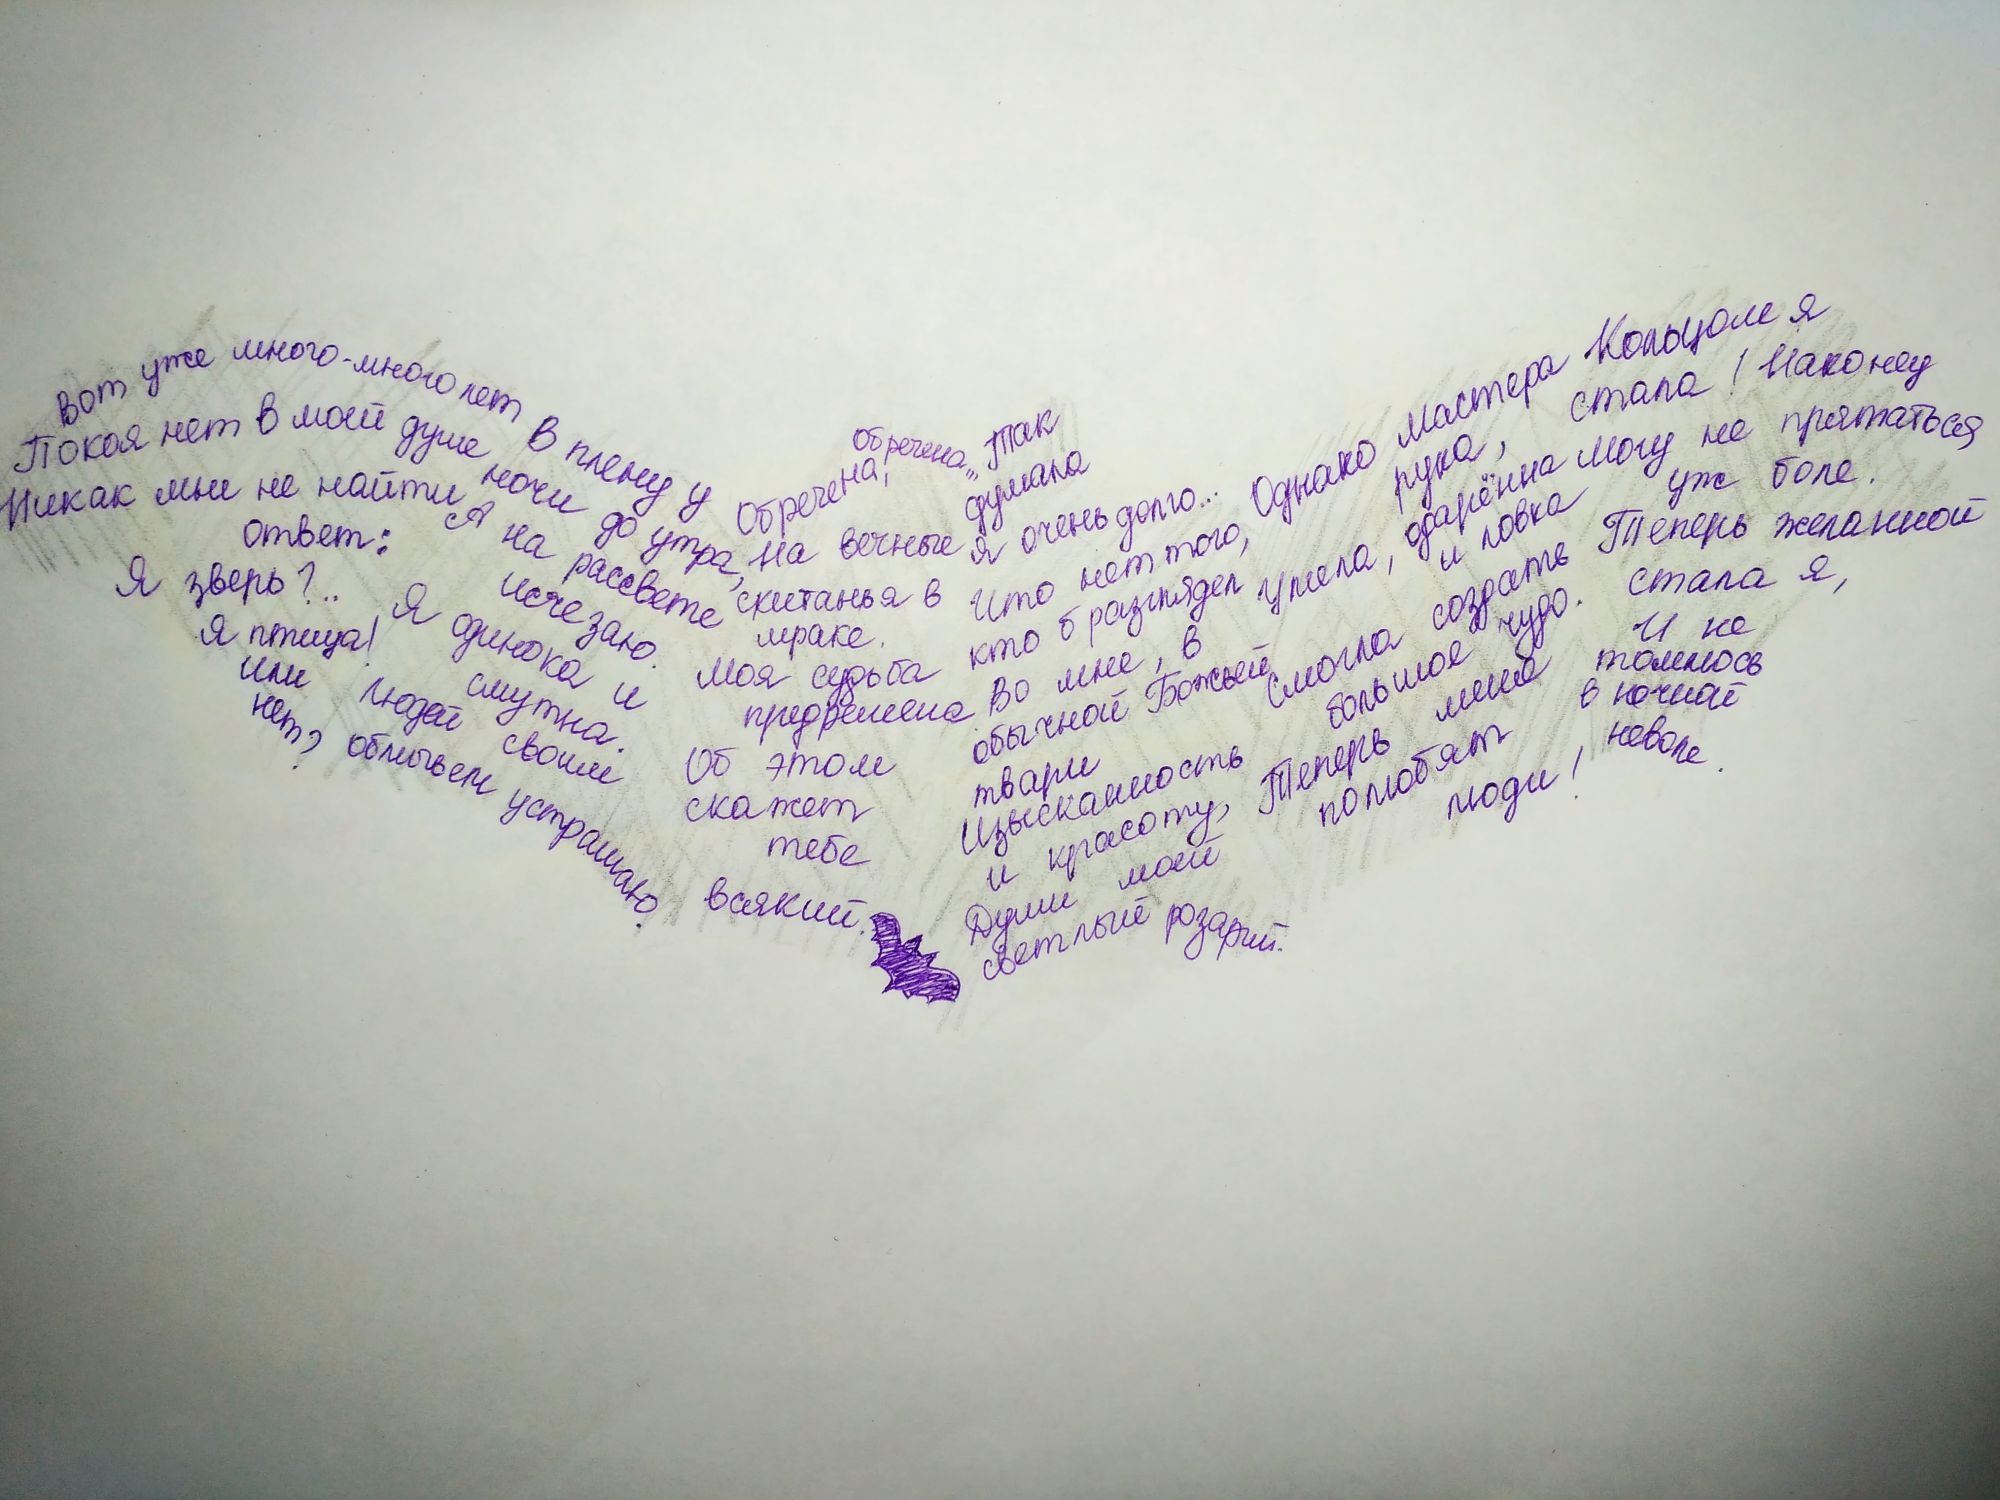 Вот уже много-много лет
Покоя нет в моей душе
Никак мне не найти
ответ:
Я зверь?..
Я птица!
или
нет?
В плену у
ночи до утра,
А на рассвете
исчезаю.
Я одинока и
смутна.
Людей своим
обличьем устрашаю.
Обречена,
обречена„
На вечные
скитанья в
мраке.
Моя судьба
предрешена
Об этом
скажет
тебе
всякий.
Так
думала
я очень долго...
Что нет того,
кто б разглядел
Во мне, в
обычной Божьей
твари
Изысканность
и красоту,
Души моей
светлый розарий.
Однако Мастера
рука,
Умела, одарённа
и ловка
Смогла создать
большое чудо.
Теперь меня
полюбят
люди!
Кольцом я
стала! Наконец
Могу не прятаться
уж боле.
Теперь желанной
стала я,
И не
томлюсь
в ночной
неволе.